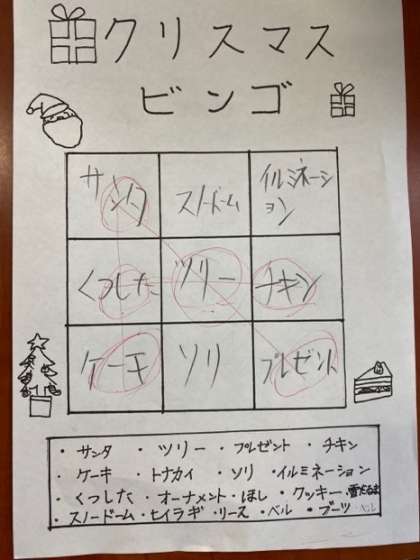 クリスマス
ビンゴ
サンタ スノードーム イルミネーション
くつした ツリー チキン
ケーキ ソリ プレゼント
・サンタ ・ツリー ・プレゼント ・チキン
・ケーキ ・トナカイ ・ソリ ・イルミネーション
・くつした ・オーナメント ・ほし ・クッキー ・雪だるま
・スノードーム ・ヒイラギ ・リース ・ベル ・ブーツ